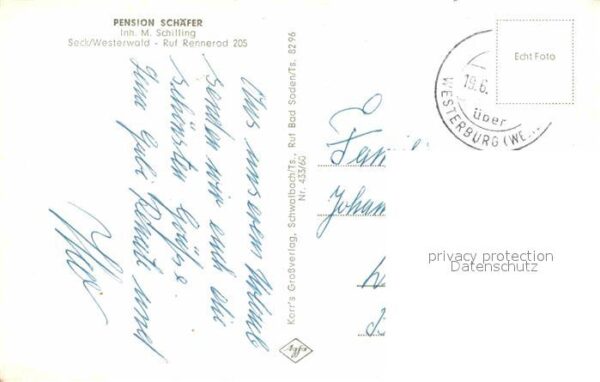 PENSION SCHÄFER
Inh. M. Schilling
Seck/Westerwald - Ruf Rennerod 205
Aus unserem Urlaub
senden wir euch die
schönsten Grüße.
Gabi Renate und
Korr's Großverlag, Schwalbach/Ts., Ruf Bad Soden/Ts. 8296
Nr. 433/60
Agfa
Echt Foto
19.6.
über
WESTERBURG (WE
Fam
Johan
privacy protection
Datenschutz